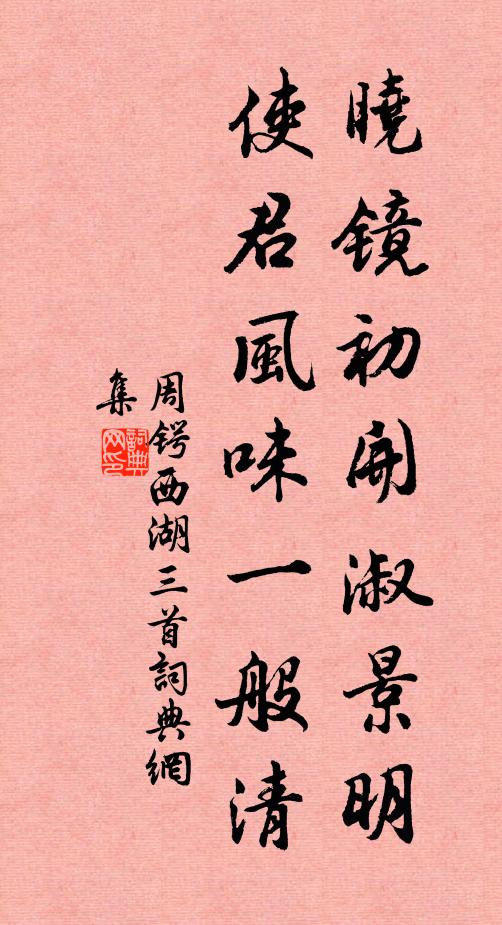 曉鏡初開淑景明
使君風味一般清
周锷西湖三首詞典網
集
詞典網印